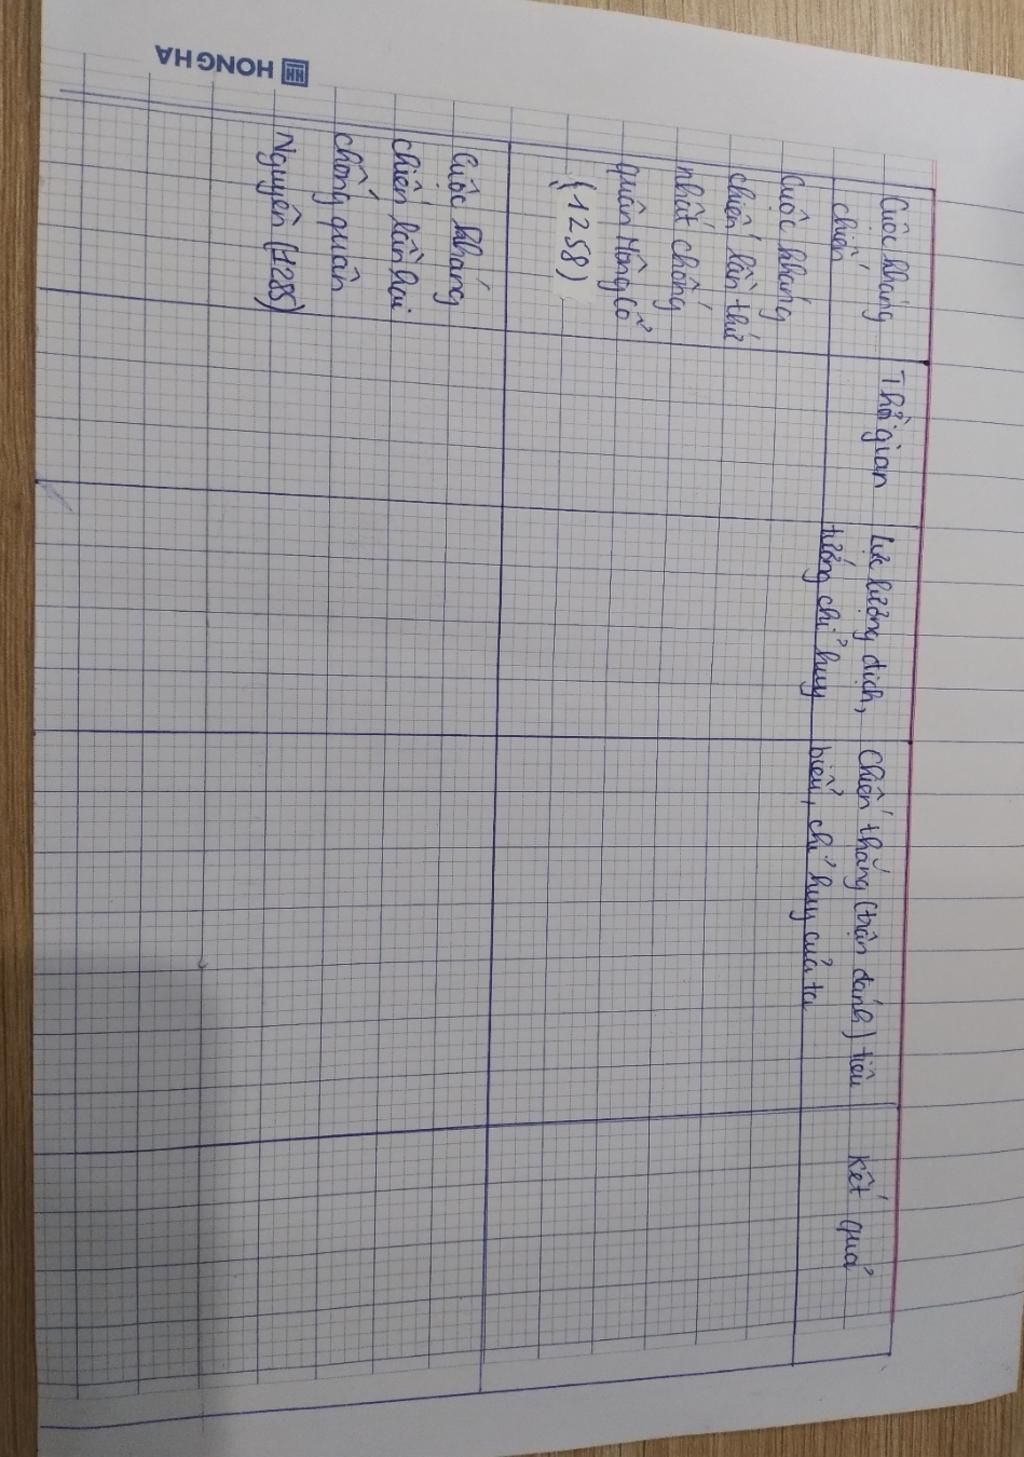 HONG HA
Cuộc kháng
chiến
Thời gian
Lực lượng địch,
tướng chỉ huy
Chiến thắng (trận đánh) tiêu
biểu, chỉ huy của ta
Kết quả
Cuộc kháng
chiến lần thứ
nhất chống
quân Mông Cổ
(1258)
Cuộc kháng
chiến lần hai
chống quân
Nguyên (1285)